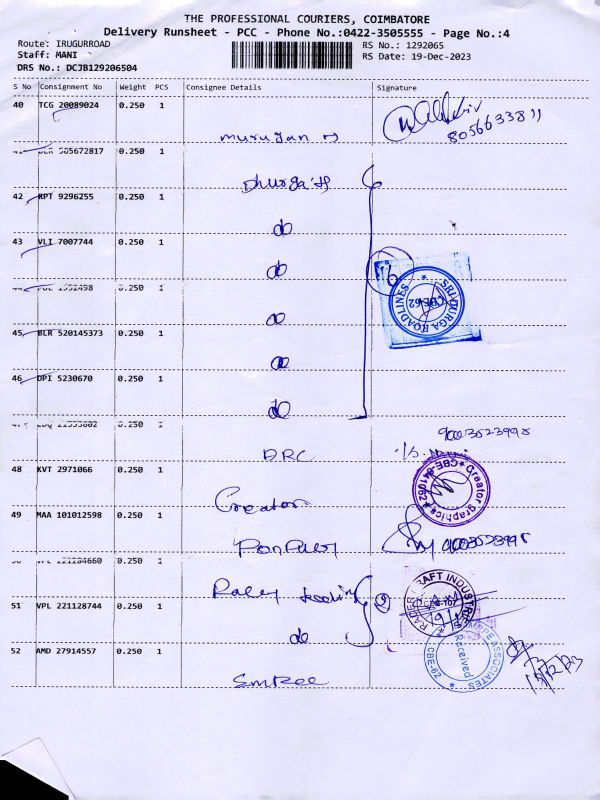 THE PROFESSIONAL COURIERS, COIMBATORE
Delivery Runsheet - PCC - Phone No.:0422-3505555 - Page No.:4
Route: IRUGURROAD
Staff: MANI
DRS No.: DCJB129206504
RS No.: 1292065
RS Date: 19-Dec-2023
S No Consignment No Weight PCS Consignee Details Signature
40 TCG 20089024 0.250 1
murugan
8056633811
505672817 0.250 1
Dhurga
42 RPT 9296255 0.250 1
do
43 VLI 7007744 0.250 1
do
0.250 1
do
SRI DURGA ROADLINES
CBE-62
45 BLR 520145373 0.250 1
do
46 DPI 5230670 0.250 1
do
0.250 1
DRC
9003523998
48 KVT 2971066 0.250 1
Creator
Creator graphics * CBE-641062 *
49 MAA 101012598 0.250 1
9003523998
0.250 1
51 VPL 221128744 0.250 1
do
2
52 AMD 27914557 0.250 1
ASSOCIATES
Received
CBE-62